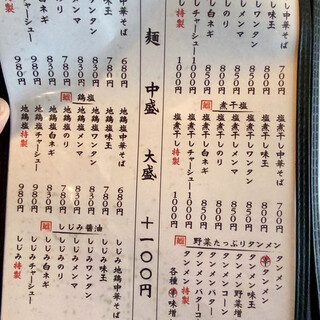 し中華そば 700
し味玉
しワンタン 850
しメンマ 850
しのり
し白ネギ 850
しチャーシュー 1000円
し特製 1000円
煮干塩
塩煮干し中華そば 700円
塩煮干し味玉
塩煮干しワンタン 850
塩煮干しメンマ 850
塩煮干しのり
塩煮干し白ネギ 850
塩煮干しチャーシュー 1000円
塩煮干し特製 1000円
野菜たっぷりタンメン
タンメン
タンメン味玉
タンメン野菜増
タンメンコーン
タンメンバター
タンメンバターコ
各種 味増
麺 中盛 大盛 十一〇〇円
中華そば 680円
味玉 780円
ワンタン 830円
メンマ 830円
のり 780円
白ネギ 830円
チャーシュー 980円
特製 980円
鶏塩
地鶏塩中華そば 680円
地鶏塩味玉 780円
地鶏塩ワンタン 830円
地鶏塩メンマ 830円
地鶏塩のり 780円
地鶏塩白ネギ 830円
地鶏塩チャーシュー 980円
地鶏塩特製 980円
しじみ醤油
しじみ地鶏中華そば
しじみ味玉
しじみワンタン
しじみメンマ
しじみのり
しじみ白ネギ
しじみチャーシュー
しじみ特製